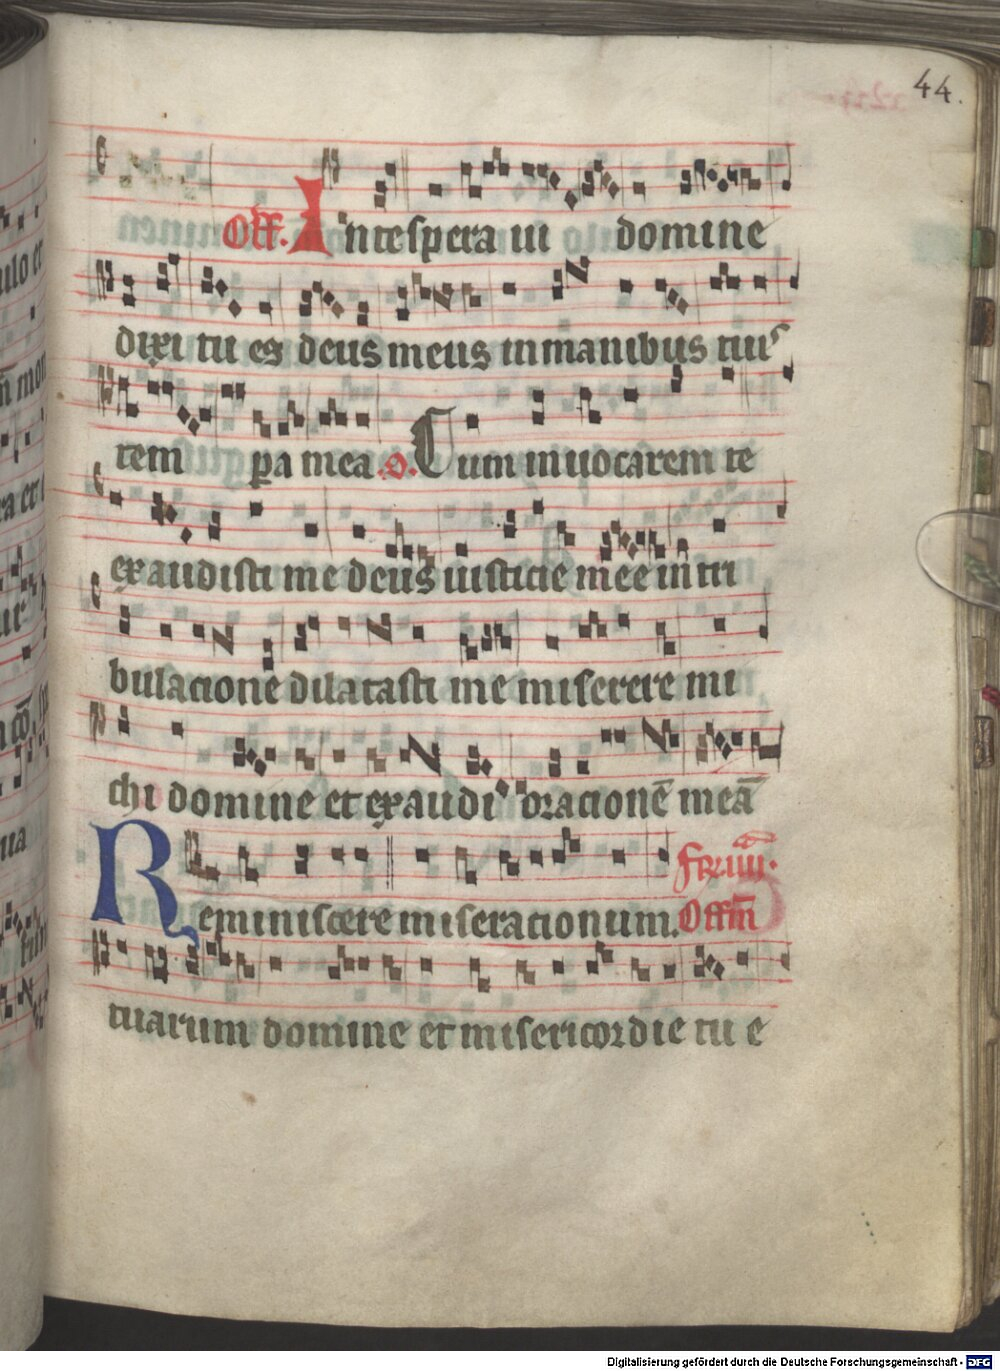 44.
Off. In te spera ui domine
dixi tu es deus meus in manibus tuis
tem pa mea .o. Cum inuocarem te
exaudisti me deus iusticie mee in tri
bulacione dilatasti me miserere mi
chi domine et exaudi oracionē meā
Fr. iiii.
Reminiscere miseracionum. Offm̄
tuarum domine et misericordie tu e
Digitalisierung gefördert durch die Deutsche Forschungsgemeinschaft - DFG